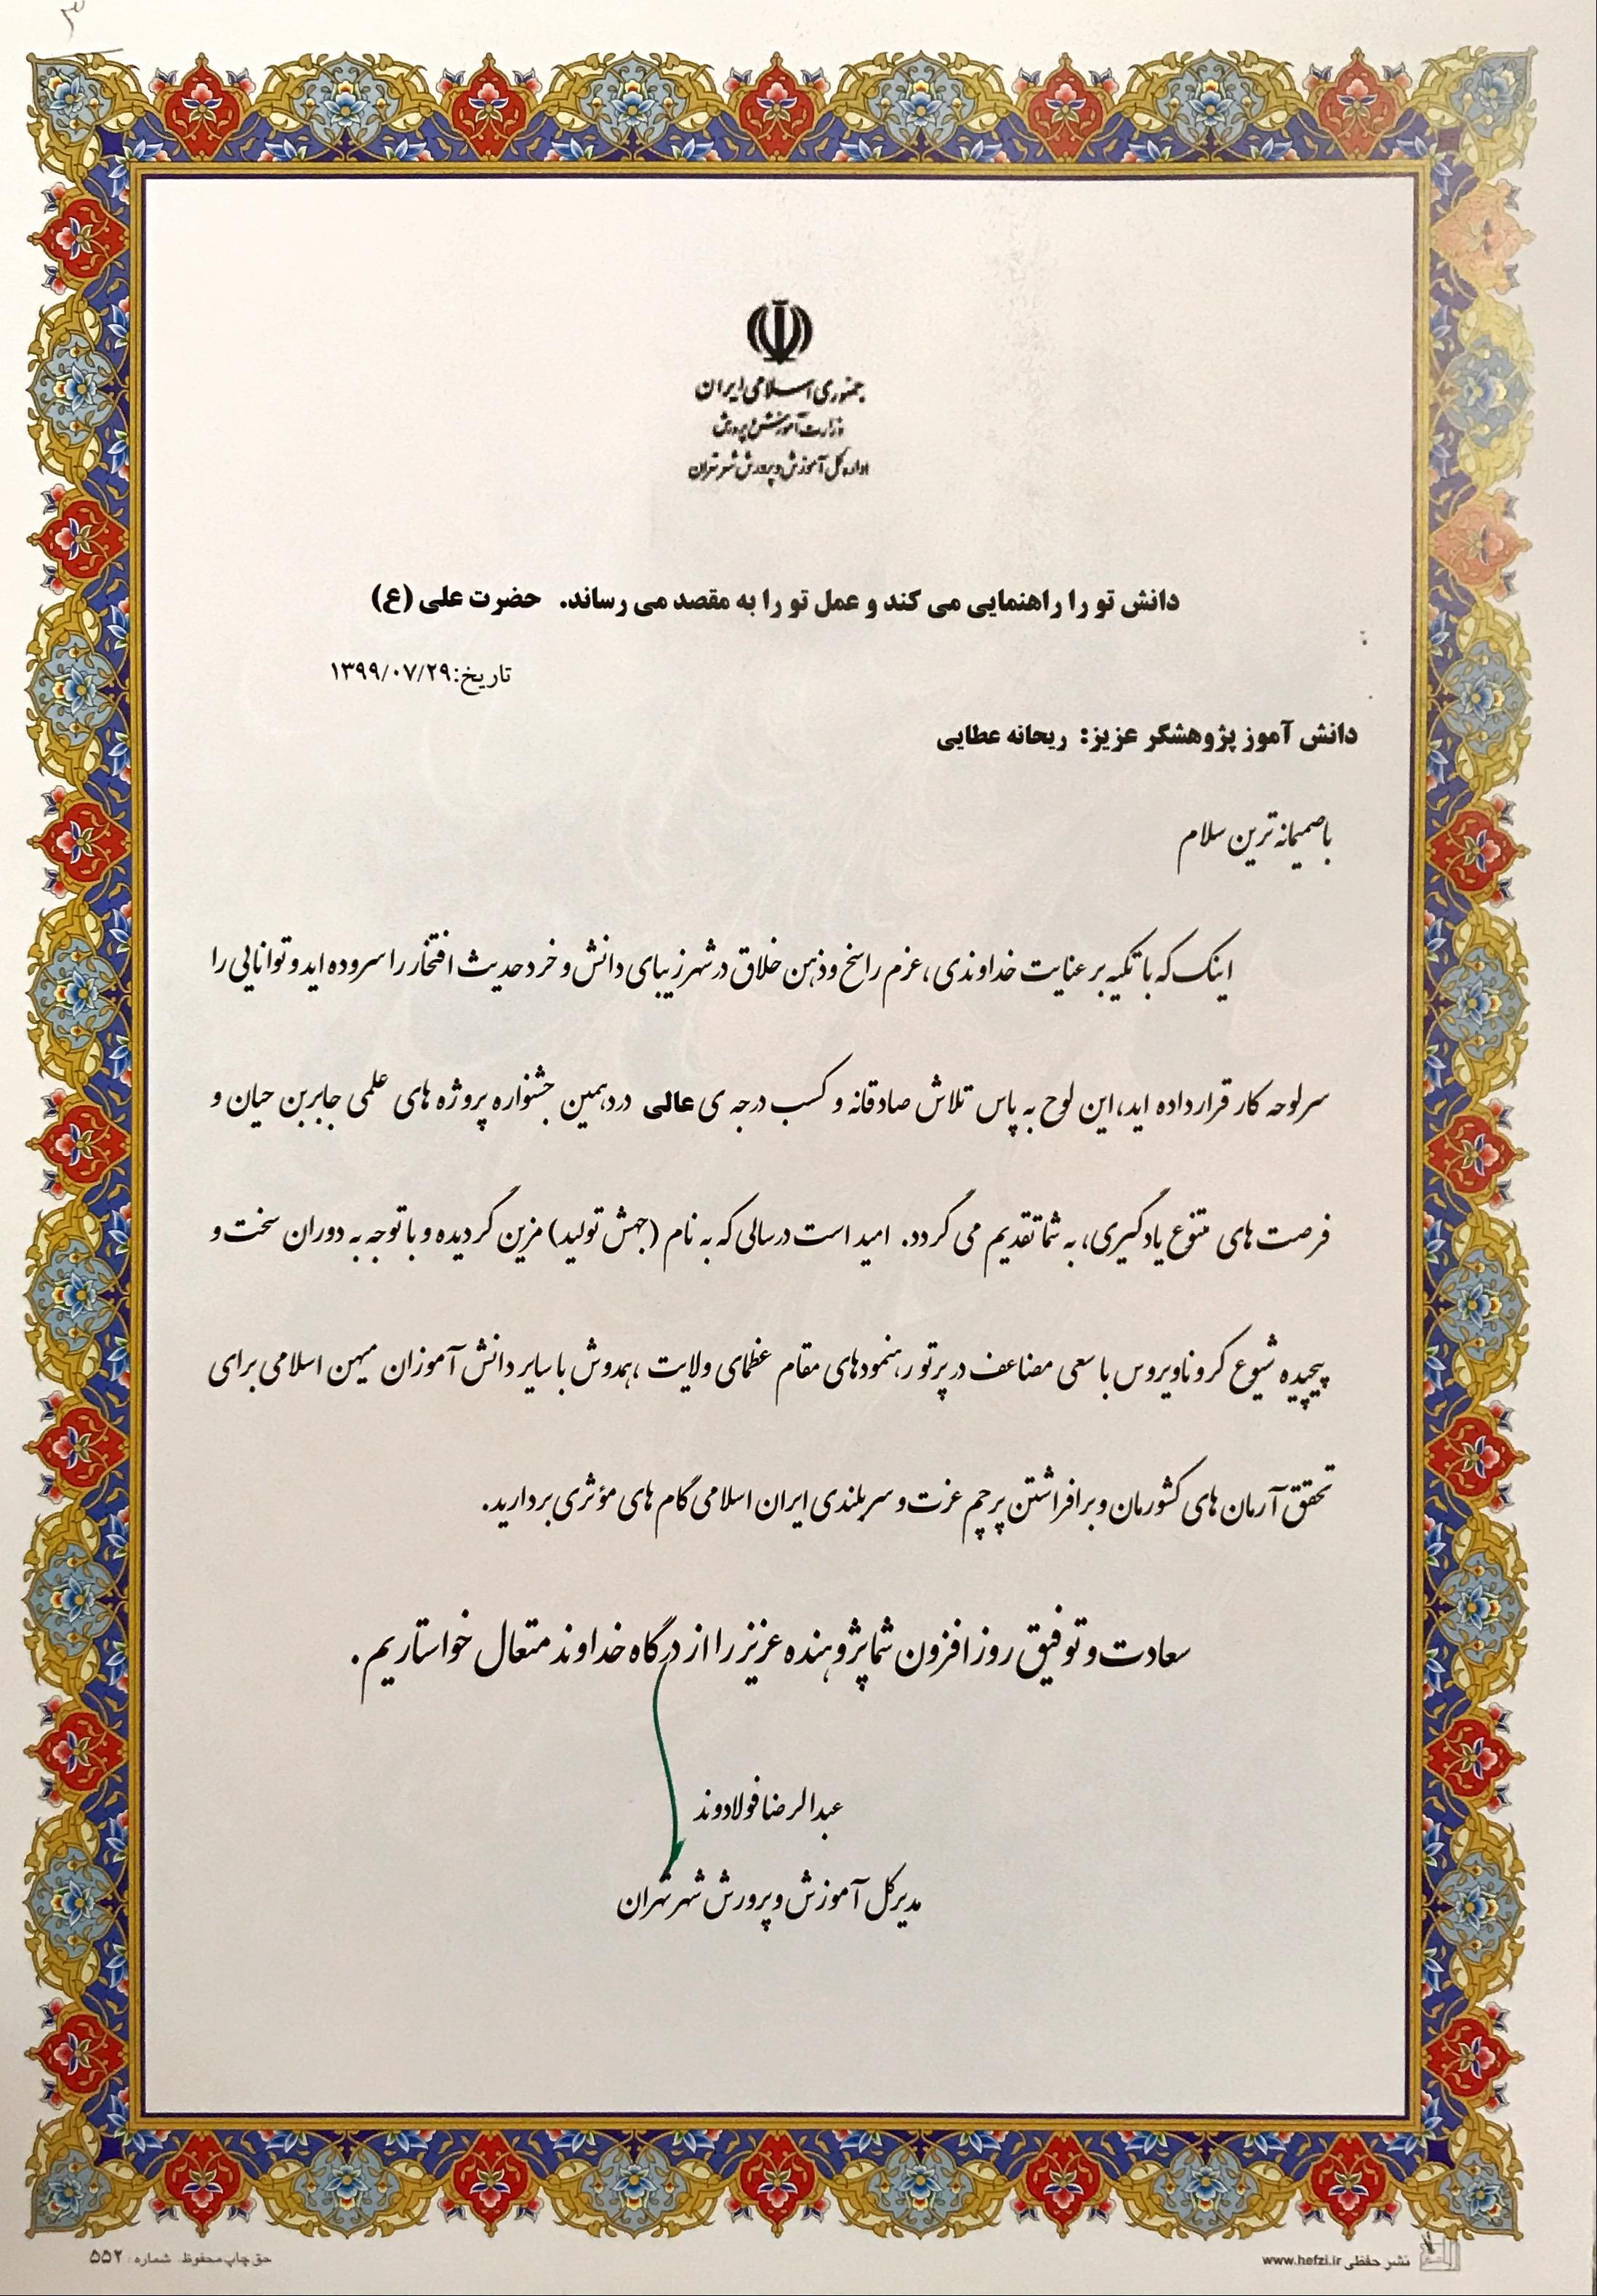 ۳
جمهوری اسلامی ایران
وزارت آموزش و پرورش
اداره کل آموزش و پرورش شهر تهران
دانش تو را راهنمایی می کند و عمل تو را به مقصد می رساند. حضرت علی (ع)
تاریخ:۱۳۹۹/۰۷/۲۹
دانش آموز پژوهشگر عزیز: ریحانه عطایی
با صمیمانه ترین سلام
اینک که با تکیه بر عنایت خداوندی، عزم راسخ و ذهن خلاق در شهر زیبای دانش و خرد حدیث افتخار را سروده اید و توانایی را
سرلوحه کار قرار داده اید، این لوح به پاس تلاش صادقانه و کسب درجه ی عالی در دهمین جشنواره پروژه های علمی جابربن حیان و
فرصت های متنوع یادگیری، به شما تقدیم می گردد. امید است در سالی که به نام (جهش تولید) مزین گردیده و با توجه به دوران سخت و
پیچیده شیوع کروناویروس با سعی مضاعف در پرتو رهنمودهای مقام عظمای ولایت ، همدوش با سایر دانش آموزان میهن اسلامی برای
تحقق آرمان های کشورمان و برافراشتن پرچم عزت و سربلندی ایران اسلامی گام های مؤثری بردارید.
سعادت و توفیق روز افزون شما پژوهنده عزیز را از درگاه خداوند متعال خواستاریم .
عبدالرضا فولادوند
مدیرکل آموزش و پرورش شهر تهران
نشر حفظی www.hefzi.ir
حق چاپ محفوظ شماره: ۵۵۲